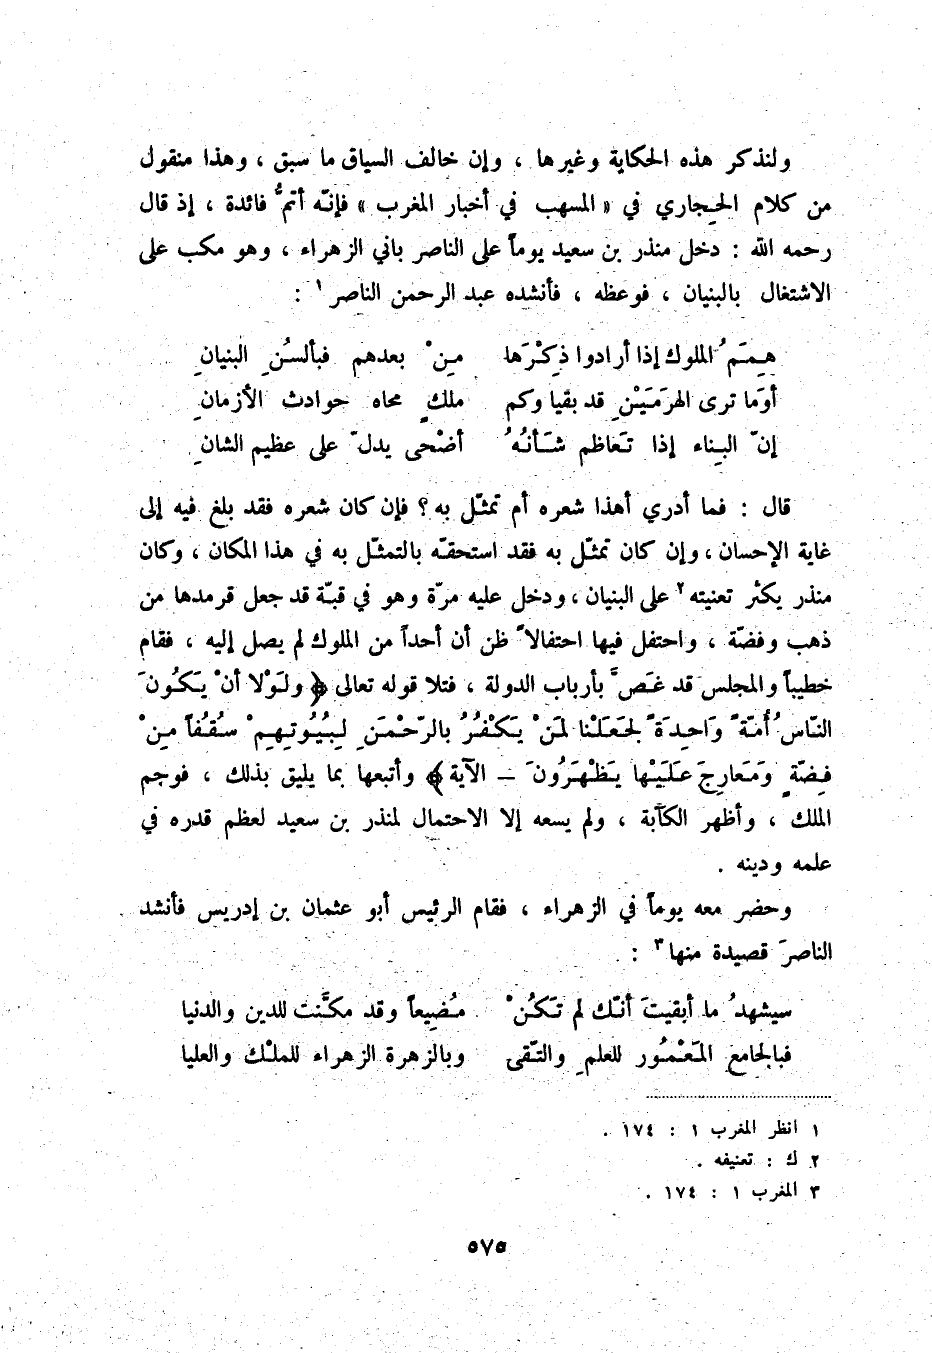 ولنذكر هذه الحكاية وغيرها ، وإن خالف السياق ما سبق ، وهذا منقول
من كلام الحِجاري في « المسهب في أخبار المغرب » فإنّه أتمُّ فائدة ، إذ قال
رحمه الله : دخل منذر بن سعيد يوماً على الناصر باني الزهراء ، وهو مكب على
الاشتغال بالبنيان ، فوعظه ، فأنشده عبد الرحمن الناصر ١ :
هِمَمُ الملوك إذا أرادوا ذِكْرَها مِنْ بعدهم فبألسُنِ البنيانِ
أوَما ترى الهرَمَيْنِ قد بقيا وكم ملكٍ محاه حوادث الأزمانِ
إنّ البِناء إذا تَعاظم شَأنُهُ أضْحى يدلّ على عظيم الشانِ
قال : فما أدري أهذا شعره أم تمثّل به ؟ فإن كان شعره فقد بلغ فيه إلى
غاية الإحسان ، وإن كان تمثّل به فقد استحقّه بالتمثّل به في هذا المكان ، وكان
منذر يكثر تعنيته ٢ على البنيان ، ودخل عليه مرّة وهو في قبّة قد جعل قرمدها من
ذهب وفضّة ، واحتفل فيها احتفالاً ظن أن أحداً من الملوك لم يصل إليه ، فقام
خطيباً والمجلس قد غَصَّ بأرباب الدولة ، فتلا قوله تعالى ﴿ ولَوْلا أنْ يَكُونَ
النّاسُ أُمّةً وَاحِدَةً لجَعَلْنا لمَنْ يَكْفُرُ بالرّحْمَنِ لِبُيُوتِهِمْ سُقُفاً مِنْ
فِضّةٍ وَمَعارِجَ عَلَيْها يَظْهَرُونَ – الآية ﴾ وأتبعها بما يليق بذلك ، فوجم
الملك ، وأظهر الكآبة ، ولم يسعه إلا الاحتمال لمنذر بن سعيد لعظم قدره في
علمه ودينه .
وحضر معه يوماً في الزهراء ، فقام الرئيس أبو عثمان بن إدريس فأنشد
الناصرَ قصيدة منها ٣ :
سيشهدُ ما أبقيتَ أنّك لم تَكُنْ مُضِيعاً وقد مكَّنت للدين والدنيا
فبالجامع المَعْمُور للعلمِ والتّقى وبالزهرة الزهراء للملْك والعليا
١ انظر المغرب ١ : ١٧٤ .
٢ ك : تعنيفه .
٣ المغرب ١ : ١٧٤ .
٥٧٥